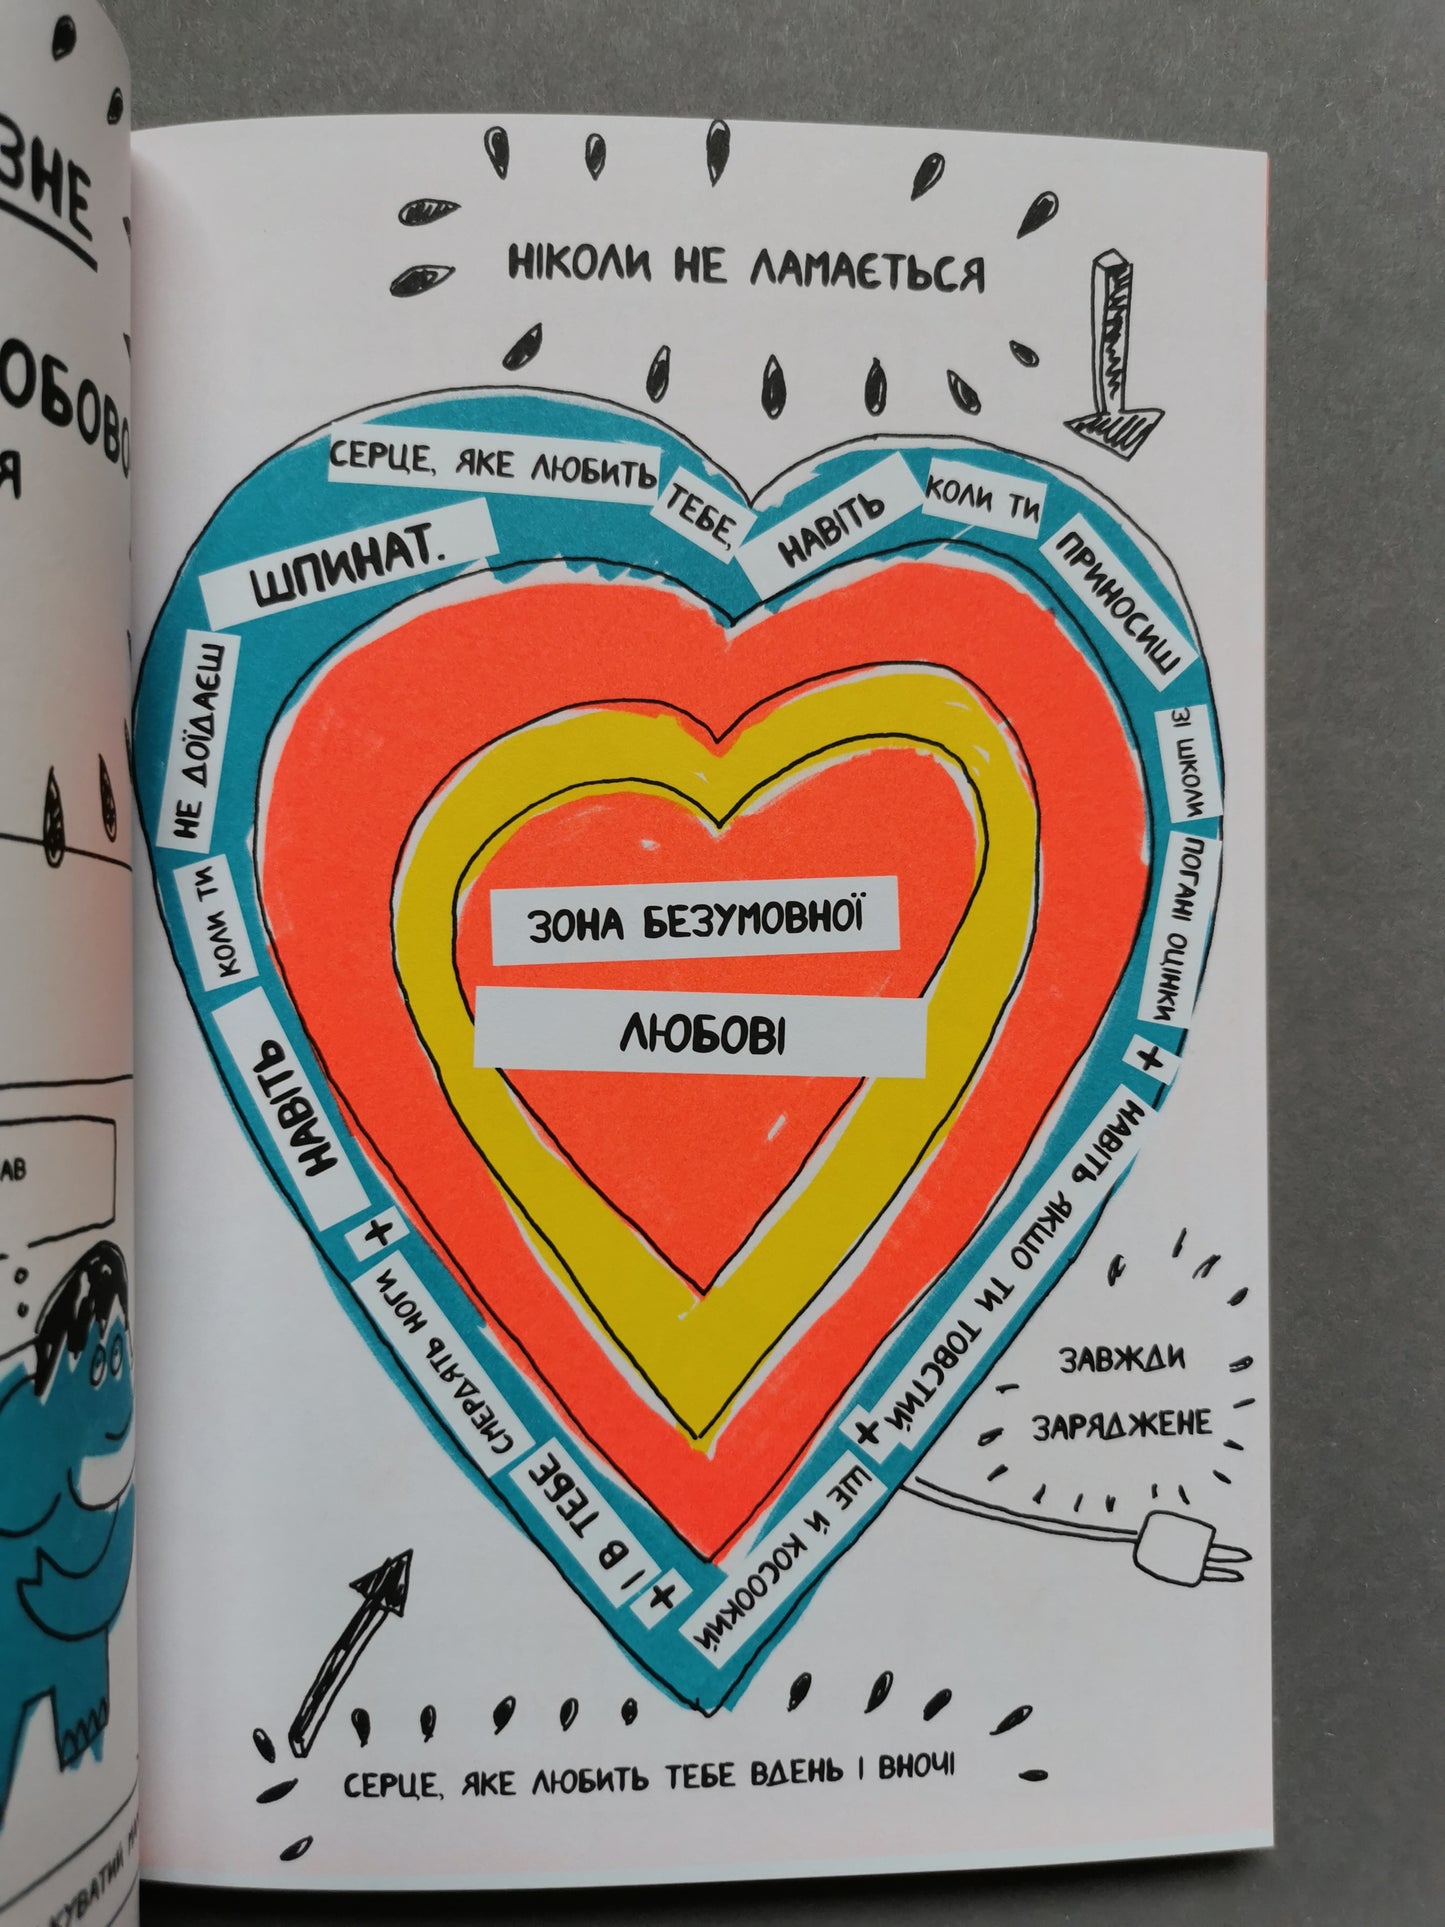 ЗНЕ
ОБОВО
Я
АВ
НІКОЛИ НЕ ЛАМАЄТЬСЯ
СЕРЦЕ, ЯКЕ ЛЮБИТЬ
ТЕБЕ,
НАВІТЬ
КОЛИ ТИ
ПРИНОСИШ
ЗІ ШКОЛИ
ПОГАНІ ОЦІНКИ
+
НАВІТЬ ЯКЩО ТИ ТОВСТИЙ
+
ЩЕ Й КОСООКИЙ
+
І В ТЕБЕ
СМЕРДЯТЬ НОГИ
+
НАВІТЬ
КОЛИ ТИ
НЕ ДОЇДАЄШ
ШПИНАТ.
ЗОНА БЕЗУМОВНОЇ
ЛЮБОВІ
ЗАВЖДИ
ЗАРЯДЖЕНЕ
СЕРЦЕ, ЯКЕ ЛЮБИТЬ ТЕБЕ ВДЕНЬ І ВНОЧІ